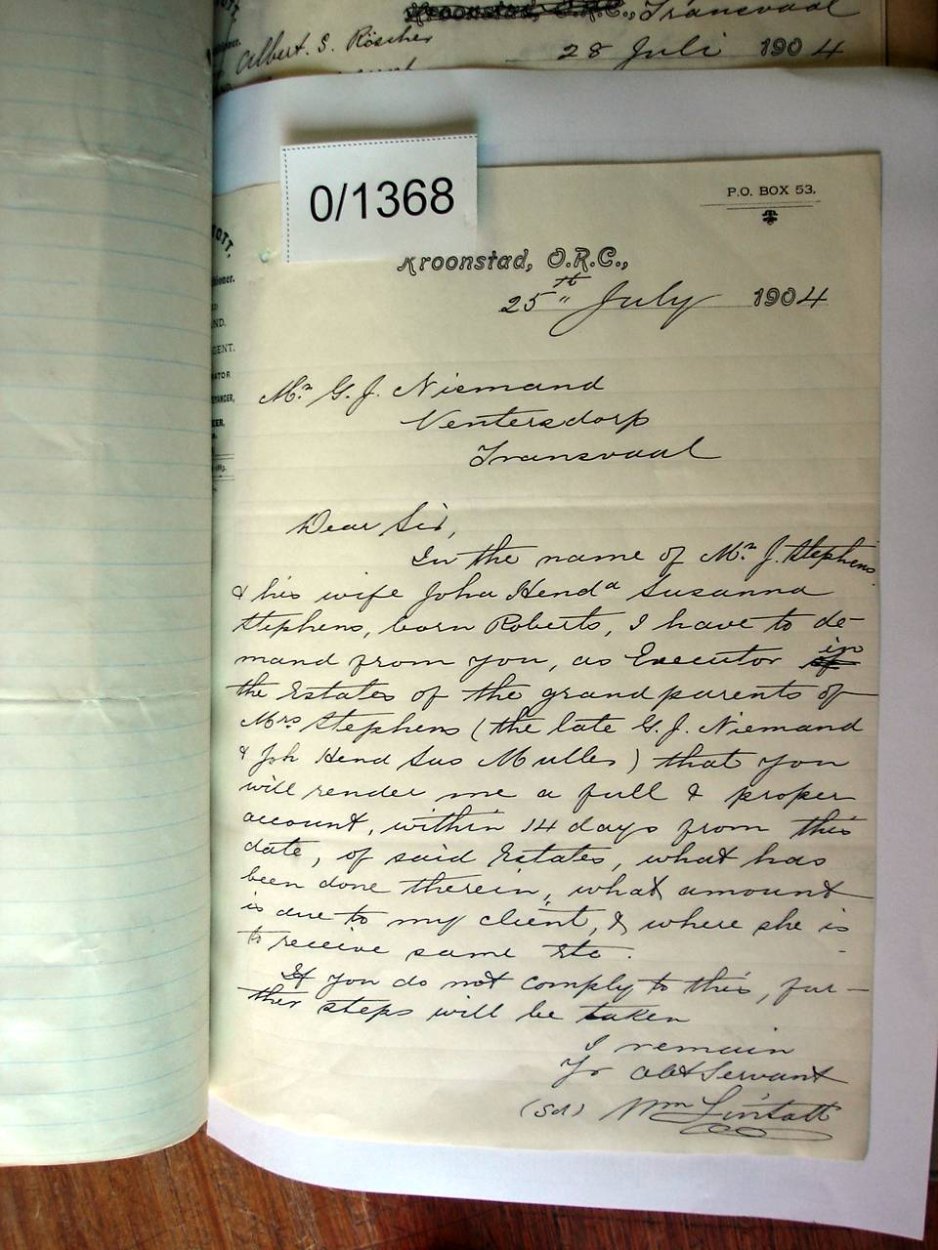 Kroonstad, O.R.C., Transvaal
Albert. S. Röscher
28 Juli 1904
0/1368
P.O. BOX 53.
Kroonstad, O.R.C.,
25th July 1904
Mr. G. J. Niemand
Ventersdorp
Transvaal
Dear Sir,
In the name of Mr. J. Stephens
& his wife Joha Henda Susanna
Stephens, born Roberts, I have to de-
mand from you, as Executor in
the Estates of the grandparents of
Mrs Stephens (the late G. J. Niemand
& Joh Hend Sus Muller) that you
will render me a full & proper
account, within 14 days from this
date, of said Estates, what has
been done therein, what amount
is due to my client, & where she is
to receive same etc.
If you do not comply to this, fur-
ther steps will be taken
I remain
Yr obt Servant
(Sd) Wm Lintott
OTT,
IND.
GENT.